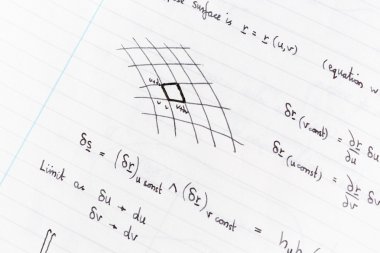 surface is r = r(u,v)
(equation w
δr (v const) = ∂r/∂u δu
δr (u const) = ∂r/∂v δv
δs = (δr)u const ∧ (δr)v const = huh
Limit as δu → du
δv → dv
∬